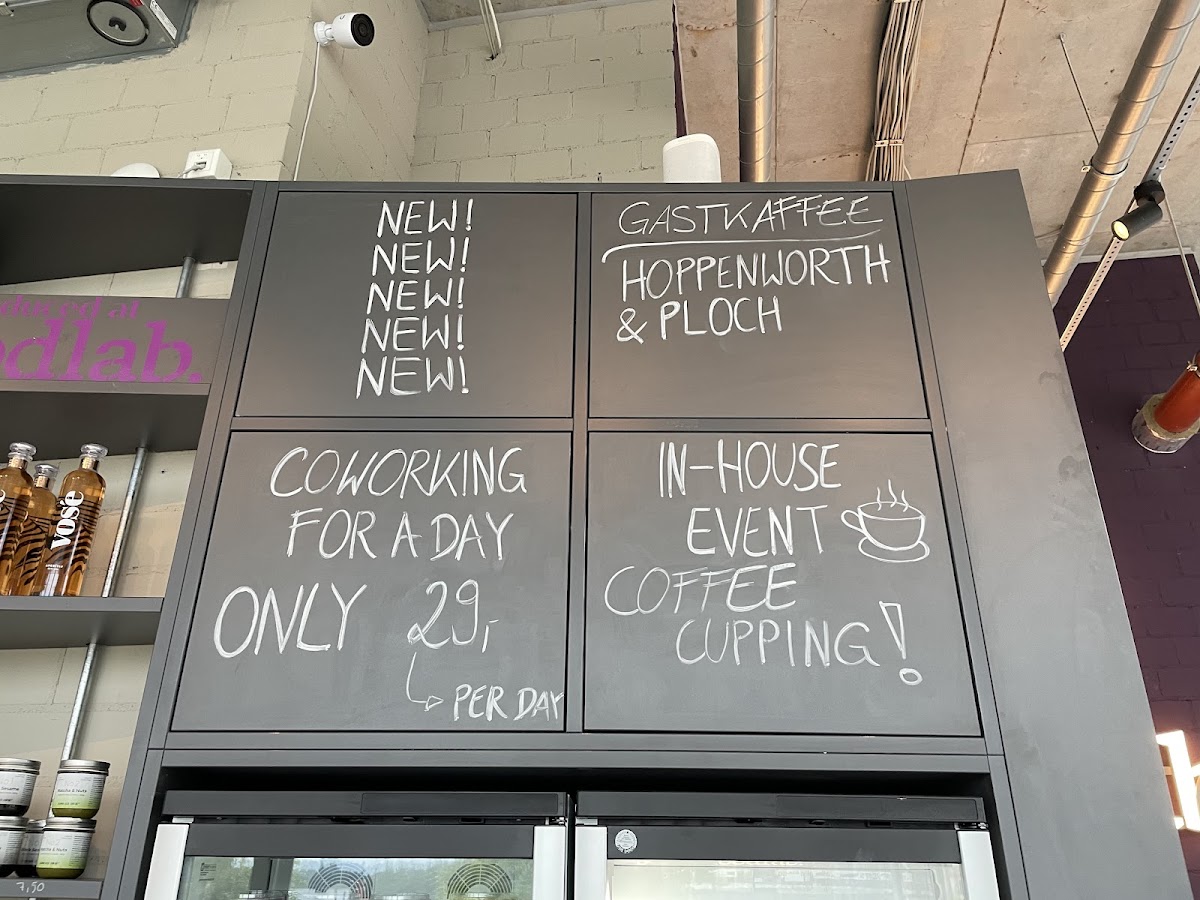 NEW!
NEW!
NEW!
NEW!
NEW!
GASTKAFFEE
HOPPENWORTH
& PLOCH
COWORKING
FOR A DAY
ONLY 29,-
PER DAY
IN-HOUSE
EVENT
COFFEE
CUPPING!
at
dlab.
vosè
7,50